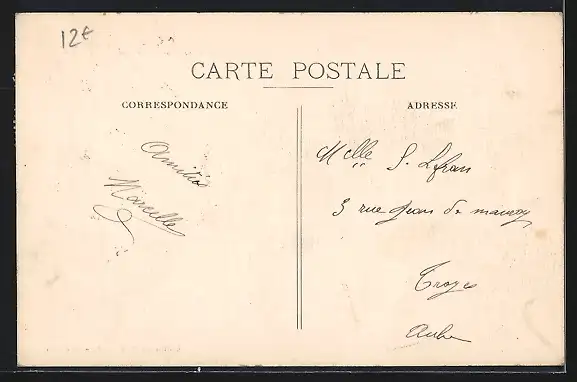 12€
CARTE POSTALE
CORRESPONDANCE
ADRESSE
Amitiés
Marcelle
Melle S. Lfran
3 rue Jean de mauroy
Troyes
Aube